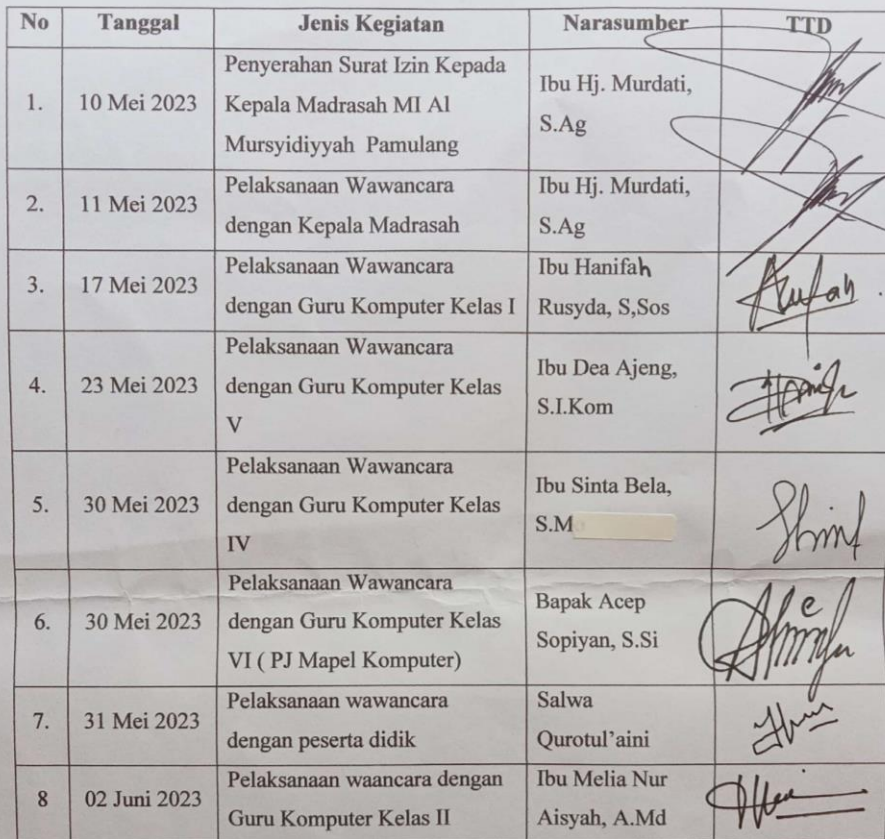 No Tanggal Jenis Kegiatan Narasumber TTD
1. 10 Mei 2023 Penyerahan Surat Izin Kepada Kepala Madrasah MI Al Mursyidiyyah Pamulang Ibu Hj. Murdati, S.Ag
2. 11 Mei 2023 Pelaksanaan Wawancara dengan Kepala Madrasah Ibu Hj. Murdati, S.Ag
3. 17 Mei 2023 Pelaksanaan Wawancara dengan Guru Komputer Kelas I Ibu Hanifah Rusyda, S,Sos
4. 23 Mei 2023 Pelaksanaan Wawancara dengan Guru Komputer Kelas V Ibu Dea Ajeng, S.I.Kom
5. 30 Mei 2023 Pelaksanaan Wawancara dengan Guru Komputer Kelas IV Ibu Sinta Bela, S.M
6. 30 Mei 2023 Pelaksanaan Wawancara dengan Guru Komputer Kelas VI ( PJ Mapel Komputer) Bapak Acep Sopiyan, S.Si
7. 31 Mei 2023 Pelaksanaan wawancara dengan peserta didik Salwa Qurotul'aini
8 02 Juni 2023 Pelaksanaan waancara dengan Guru Komputer Kelas II Ibu Melia Nur Aisyah, A.Md